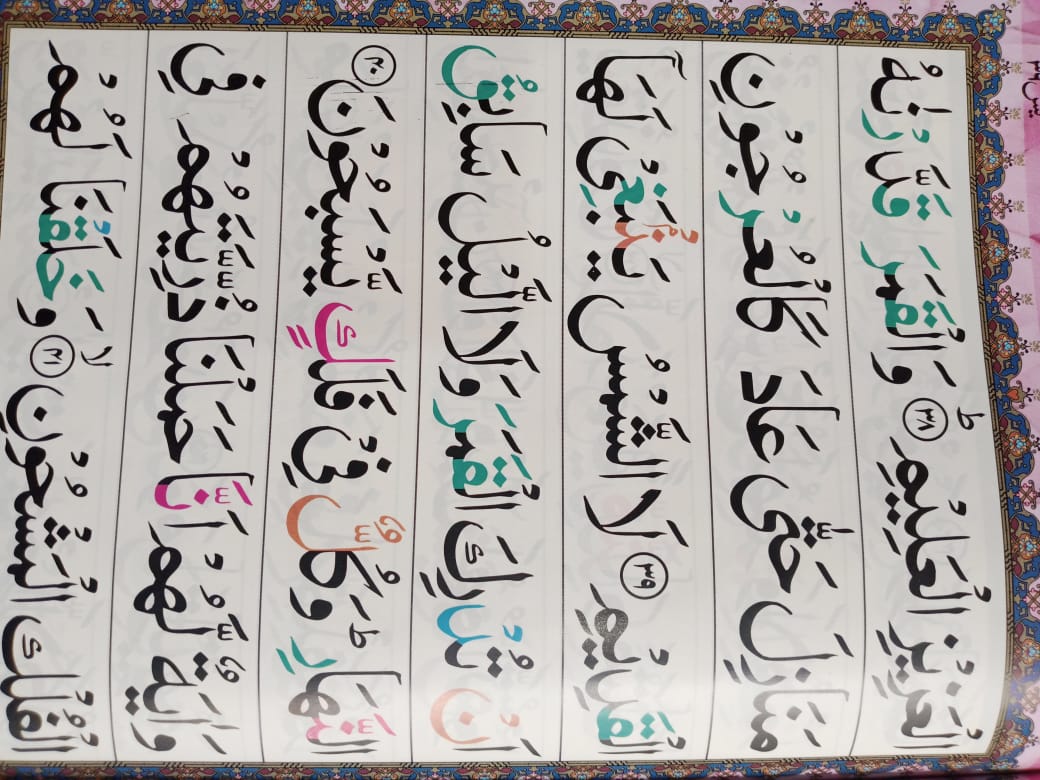 يٰسٓ ۳۶
الْعَزِيْزِ الْعَلِيْمِ ؕ ۳۸ وَالْقَمَرَ قَدَّرْنٰهُ
مَنَازِلَ حَتّٰى عَادَ كَالْعُرْجُوْنِ
الْقَدِيْمِ ۳۹ لَا الشَّمْسُ يَنْۢبَغِيْ لَهَاۤ
اَنْ تُدْرِكَ الْقَمَرَ وَلَا الَّيْلُ سَابِقُ
النَّهَارِ ؕ وَكُلٌّ فِيْ فَلَكٍ يَّسْبَحُوْنَ ۴۰
وَاٰيَةٌ لَّهُمْ اَنَّا حَمَلْنَا ذُرِّيَّتَهُمْ فِي
الْفُلْكِ الْمَشْحُوْنِ ۙ ۴۱ وَخَلَقْنَا لَهُمْ